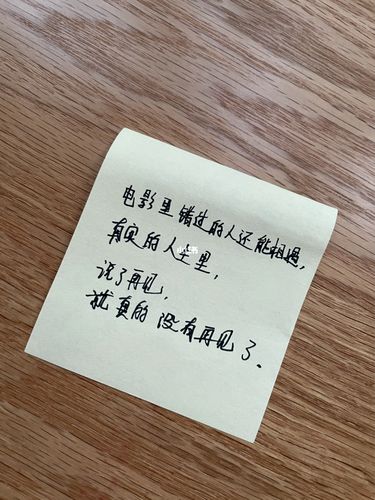 电影里错过的人还能相遇,
真实的人生里,
说了再见,
就真的没有再见了.